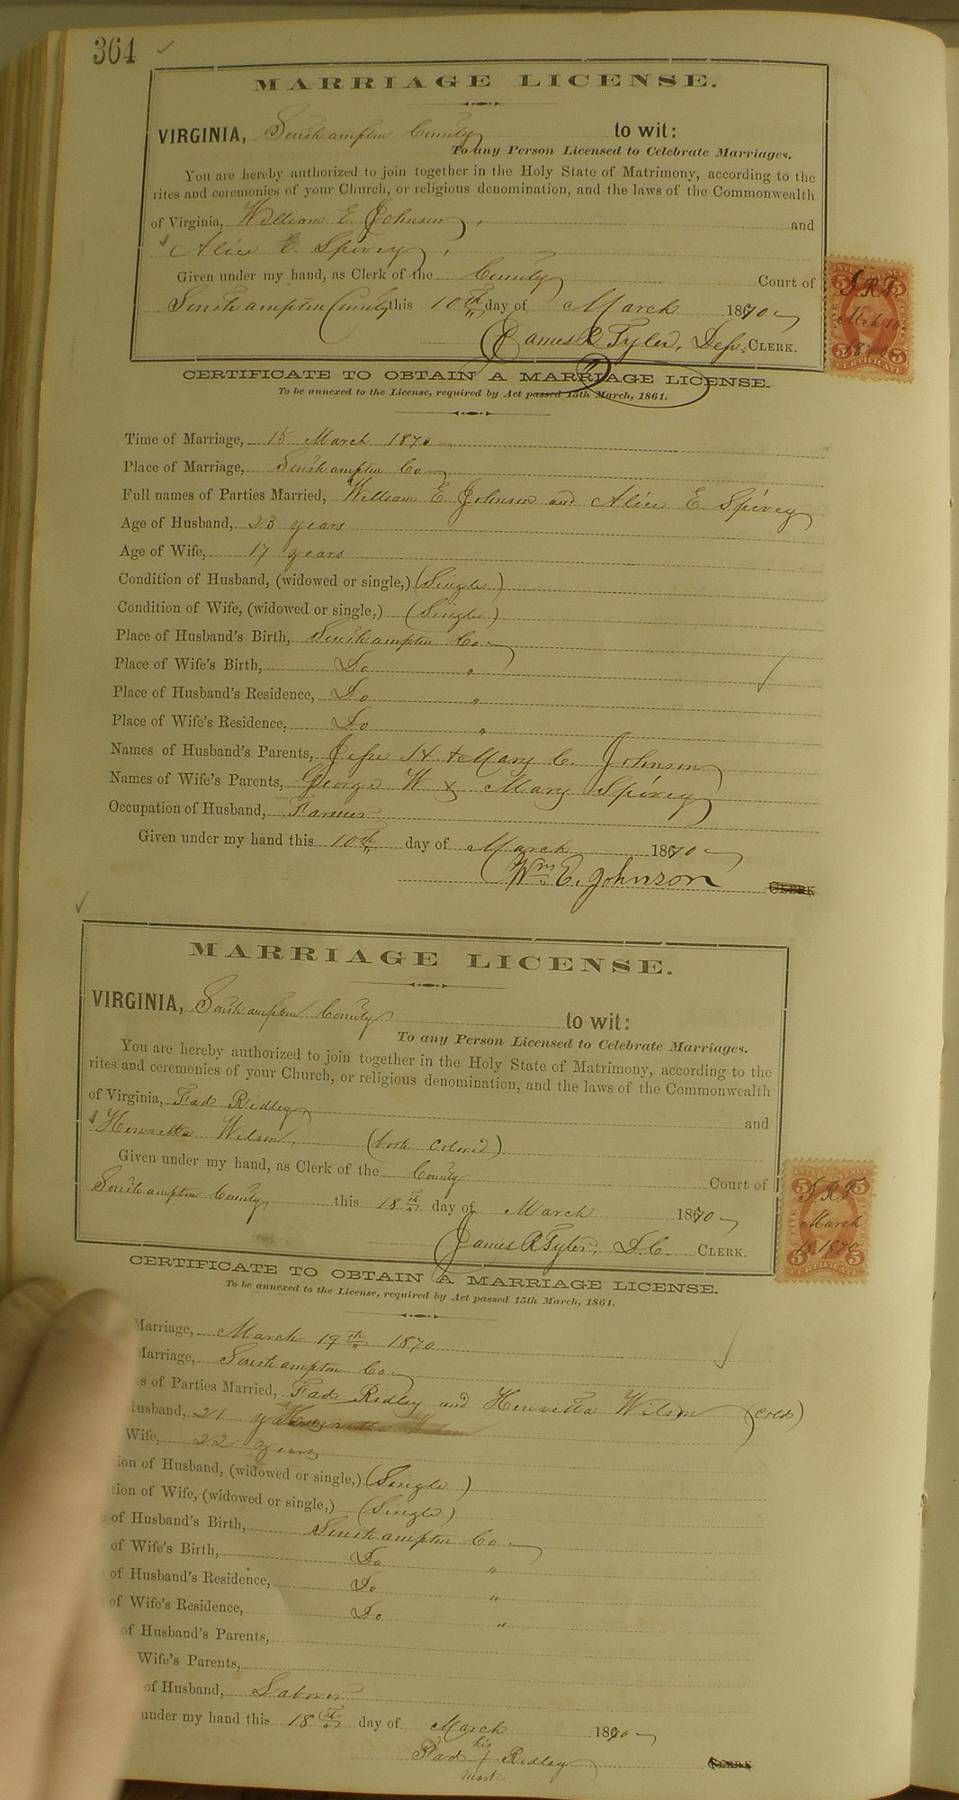 364
MARRIAGE LICENSE.
VIRGINIA, Southampton County to wit:
To any Person Licensed to Celebrate Marriages.
You are hereby authorized to join together in the Holy State of Matrimony, according to the
rites and ceremonies of your Church, or religious denomination, and the laws of the Commonwealth
of Virginia, William E. Johnson, and
Alice E. Spivey,
Given under my hand, as Clerk of the County Court of
Southampton County this 10th day of March 1870
James R Tyler, Dep. CLERK.
J R T.
Mch 10.
1870
CERTIFICATE TO OBTAIN A MARRIAGE LICENSE.
To be annexed to the License, required by Act passed 15th March, 1861.
Time of Marriage, 15 March 1870
Place of Marriage, Southampton Co
Full names of Parties Married, William E. Johnson and Alice E. Spivey
Age of Husband, 23 years
Age of Wife, 17 years
Condition of Husband, (widowed or single,) (Single)
Condition of Wife, (widowed or single,) (Single)
Place of Husband's Birth, Southampton Co
Place of Wife's Birth, Do "
Place of Husband's Residence, Do "
Place of Wife's Residence, Do "
Names of Husband's Parents, Jesse H. & Mary C. Johnson
Names of Wife's Parents, George W & Mary Spivey
Occupation of Husband, Farmer
Given under my hand this 10th day of March 1870
Wm E. Johnson CLERK
MARRIAGE LICENSE.
VIRGINIA, Southampton County to wit:
To any Person Licensed to Celebrate Marriages.
You are hereby authorized to join together in the Holy State of Matrimony, according to the
rites and ceremonies of your Church, or religious denomination, and the laws of the Commonwealth
of Virginia, Fad Ridley and
Henrietta Wilson, (both colored)
Given under my hand, as Clerk of the County Court of
Southampton County this 18th day of March 1870
James R Tyler, D.C. CLERK.
J R T
March
18 1870
CERTIFICATE TO OBTAIN A MARRIAGE LICENSE.
To be annexed to the License, required by Act passed 15th March, 1861.
Marriage, March 19th 1870
Marriage, Southampton Co
s of Parties Married, Fad Ridley and Henrietta Wilson (cold)
usband, 21 years
Wife, 22 years
ion of Husband, (widowed or single,) (Single)
ion of Wife, (widowed or single,) (Single)
of Husband's Birth, Southampton Co
of Wife's Birth, Do "
of Husband's Residence, Do "
of Wife's Residence, Do "
of Husband's Parents,
Wife's Parents,
of Husband, Laborer
under my hand this 18th day of March 1870
his
Fad Ridley CLERK
mark